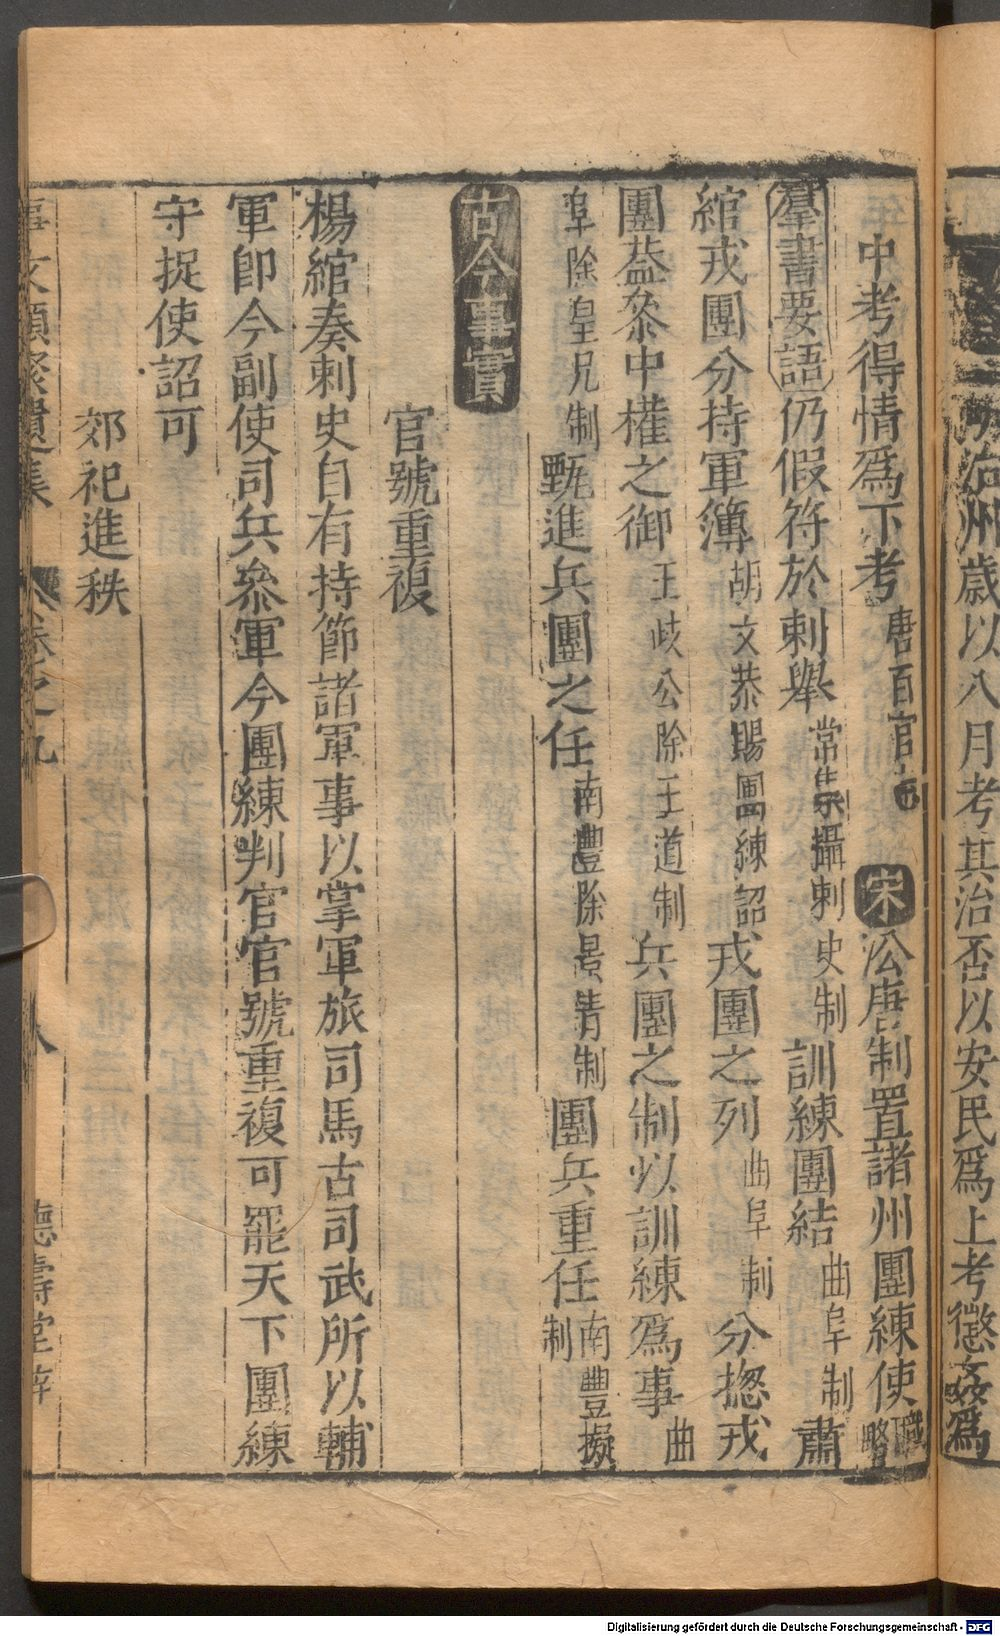 州歲以八月考其治否以安民爲上考懲姦爲
中考得情爲下考唐百官志宋㳂唐制置諸州團練使職略
羣書要語仍假符於刺舉常集攝刺史制訓練團結曲阜制肅
綰戎團分持軍簿胡文恭賜團練詔戎團之列曲阜制分揔戎
團葢叅中權之御王歧公除王道制兵團之制以訓練爲事曲
阜除皇兄制甄進兵團之任南豐除景靑制團兵重任南豐擬制
古今事實
官號重復
楊綰奏刺史自有持節諸軍事以掌軍旅司馬古司武所以輔
軍卽今副使司兵叅軍今團練判官官號重複可罷天下團練
守捉使詔可
郊祀進秩
事文類聚遺集 卷之九 八 德壽堂梓
Digitalisierung gefördert durch die Deutsche Forschungsgemeinschaft - DFG